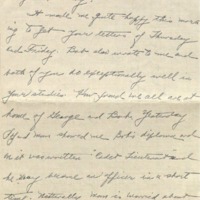 It made me quite happy this morn-
ing to get your letters of Thursday
and Friday. Bob also wrote to me and
both of you do exceptionally well in
your studies. How proud we all are at
home of George and Bob. Yesterday
showed me Bob's diploma and
on it was written "Cadet Lieutenant and
he may become an officer in a short
time. Naturally was is worried about